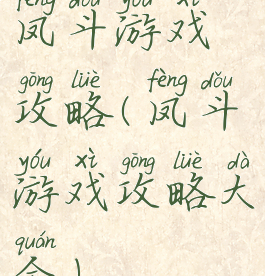 fèng dǒu yóu xì
凤斗游戏
gōng lüè fèng dǒu
攻略(凤斗
yóu xì gōng lüè dà
游戏攻略大
quán
全)